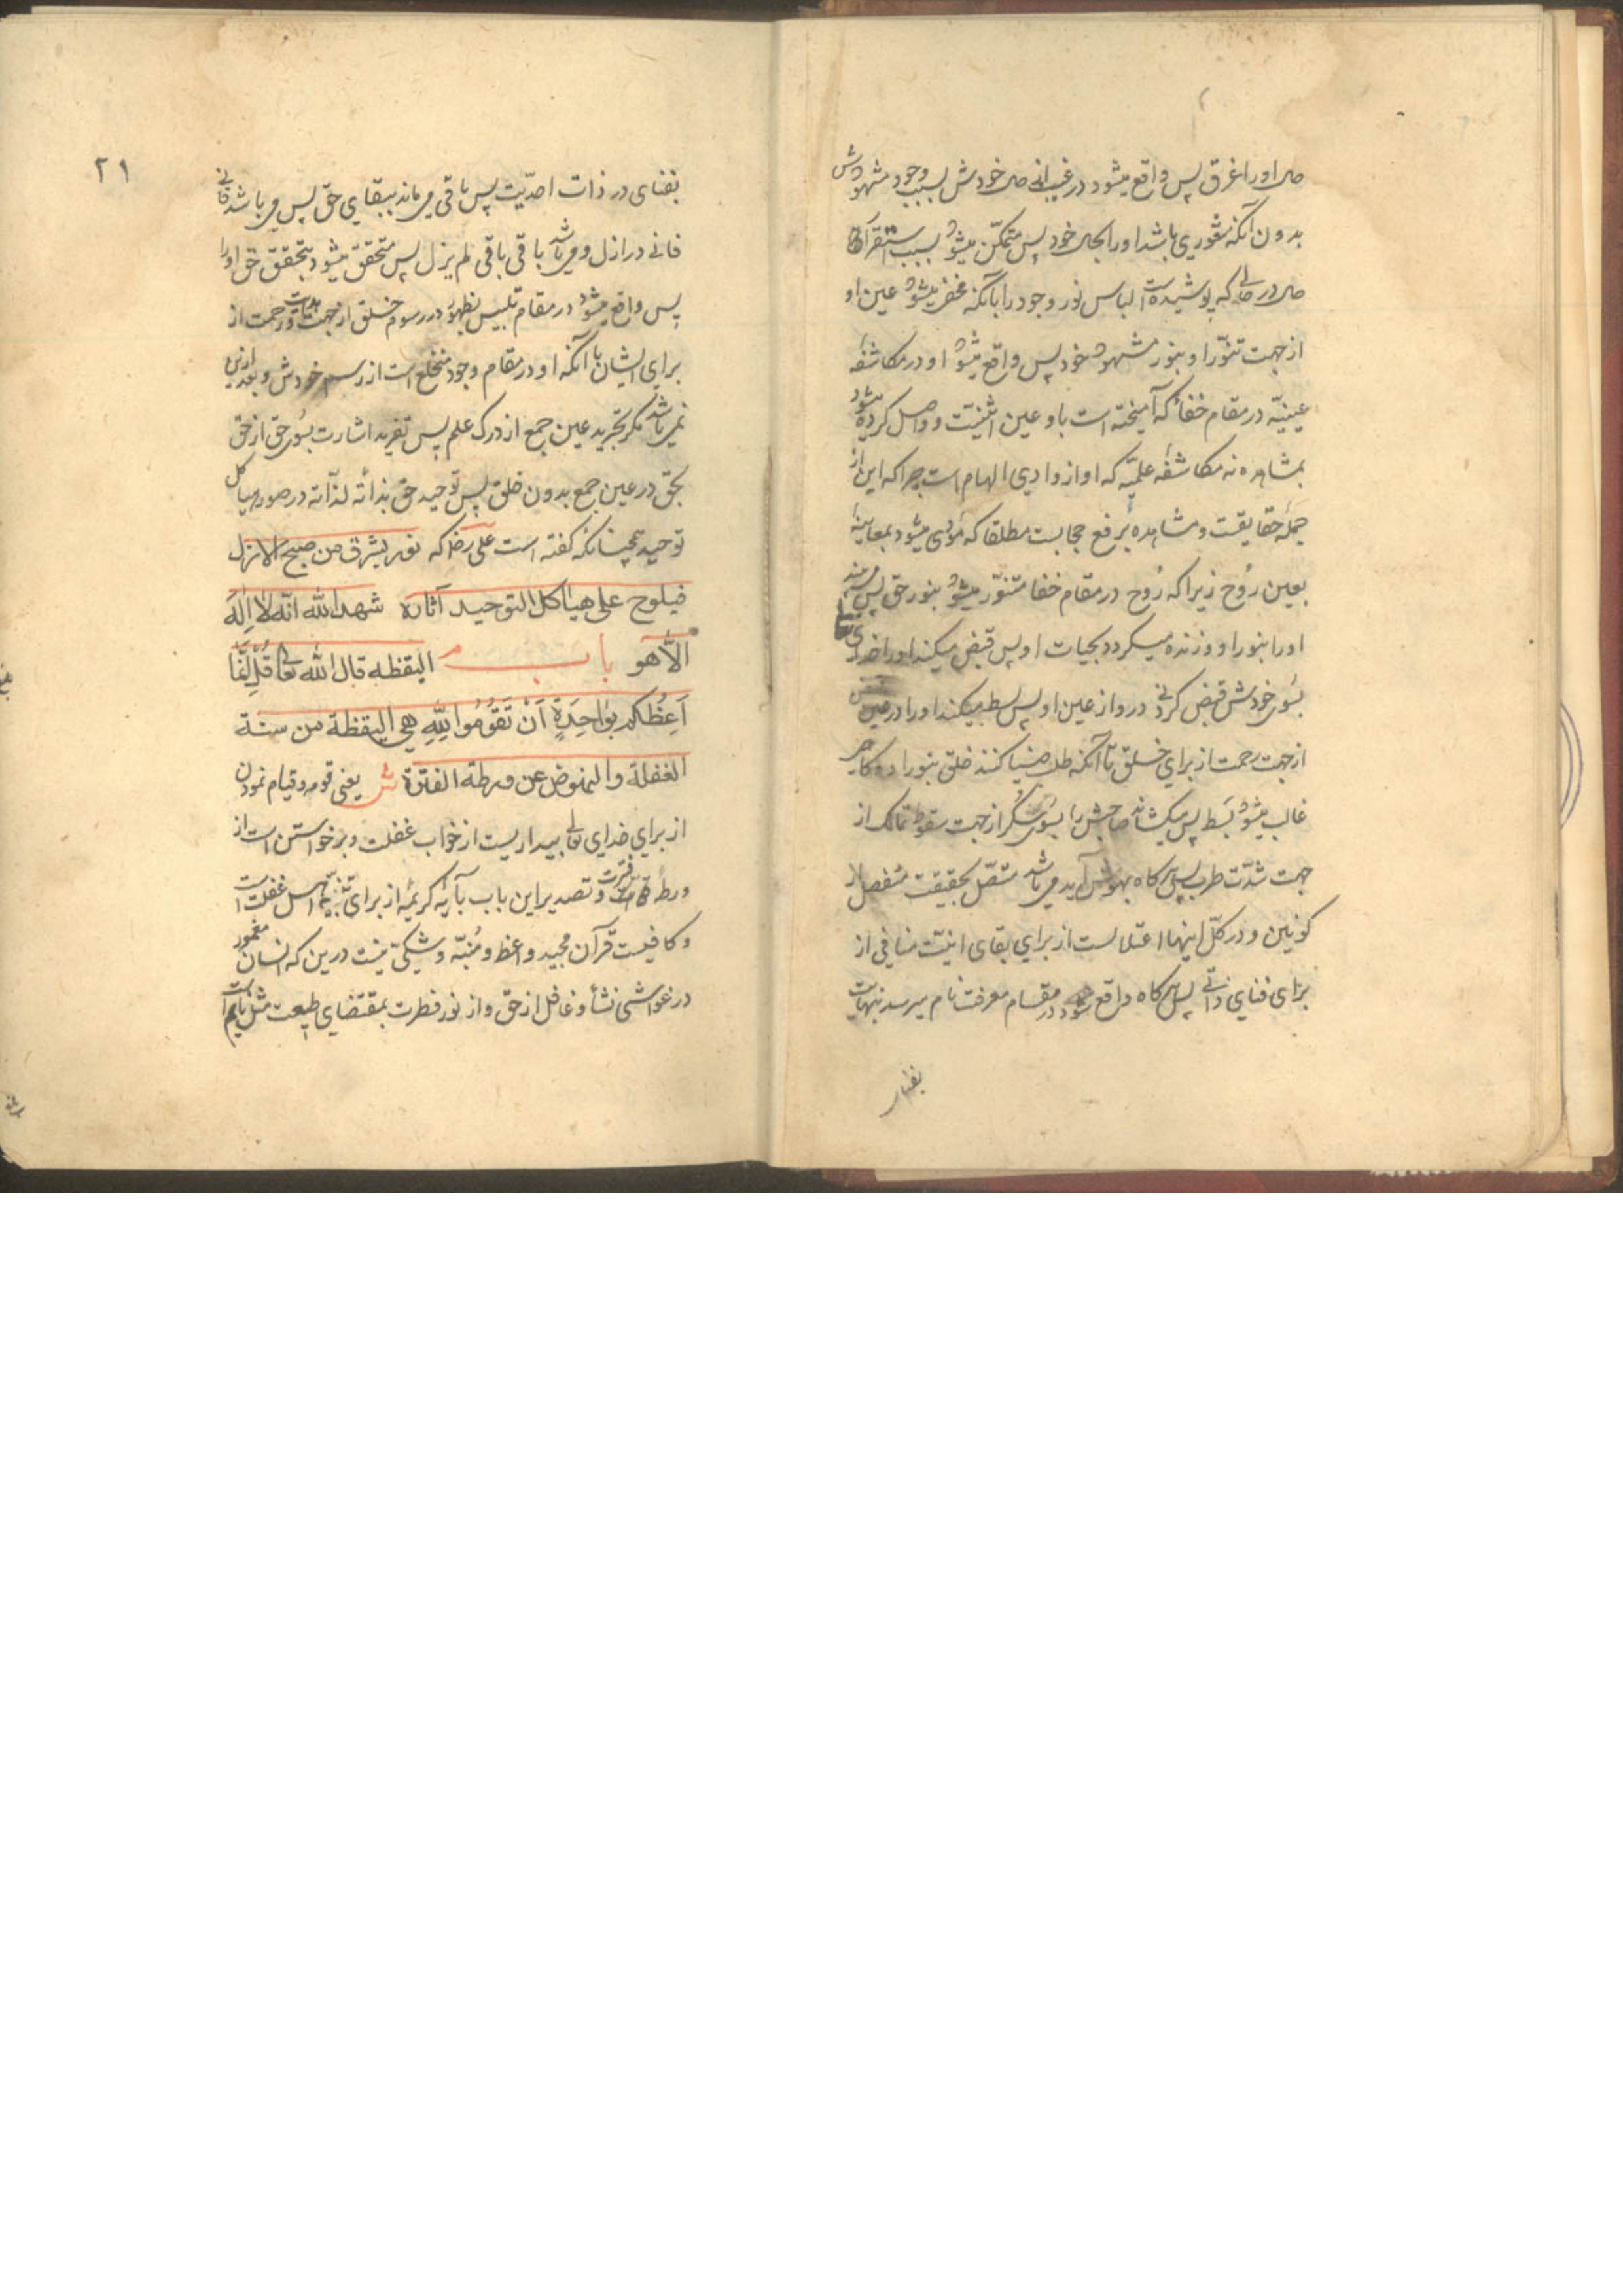 حال او را غرق پس واقع میشود در غیب از حال خودش بسبب وجود مشهودش
بدون آنکه شعوری باشد او را بحال خود پس متمکّن میشود بسبب استقرار
حال در حالی که پوشیده است لباس نور وجود را بآنکه میشود عین او
از جهت تنوّر او بنور مشهود خود پس واقع میشود او در مکاشفه
عینیّه در مقام خفا که آمیخته است باو عین اثنینیّت و واصل کرده میشود
بمشاهده نه مکاشفه علمیّه که او از وادی الهام است چرا که این از
جملهٔ حقایقست و مشاهده برفع حجابست مطلقا که مؤدی میشود بمعاینهٔ
بعین رُوح زیرا که رُوح در مقام خفا متنوّر میشود بنور حق پس
او را بنور او و زنده میگردد بحیات او پس قبض میکند او را خدای
بسوی خودش قبض کردنی در و از عین او پس بسط میکند او را در عین
از جهت رحمت از برای خلق تا آنکه طلب ضیا کنند خلق بنور او
غالب میشود بسط پس میکشاند صاحبش را بسوی سُکر از جهت سقوط تمالک از
جهت شدّت طرب پس هرگاه بهوش آید می باشد متّصل بحقیقت منفصل از
کونین و در کلّ اینها اعتلالست از برای بقای انیّت منافی از
برای فنای ذاتی پس هرگاه واقع شود در مقام معرفت تام میرسد نهایت
بفنای
۲۱
بفنای در ذات احدیّت پس باقی می ماند ببقای حقّ پس می باشد فانی
فانی در ازل و می باشد باقی باقی لم یزل پس متحقق میشود بتحقق حق او را
پس واقع میشود در مقام تلبیس بظهور در رسوم خلق از جهت هدایت و رحمت از
برای ایشان با آنکه او در مقام وجود منخلع است از رسم خودش و بعد ازین
نمی باشد مگر تجرید عین جمع از درک علم پس تفرید اشارت بسوی حق از حق
بحق در عین جمع بدون خلق پس توحید حق بذاته لذاته در صور هیاکل
توحید همچنانکه گفته است علی رض که نور یشرق من صبح الازل
فیلوح علی هیاکل التوحید آثاره شهد الله انّه لا اله
الّا هو باب الیقظه قال الله تعالی قُل اِنّما
اَعِظُکم بِوٰاحِدَةٍ اَنْ تَقُومُوا لِلّٰهِ هی الیقظة من سنة
الغفلة والنهوض عن ورطة الفترة ش یعنی قومه و قیام نمودن
از برای خدای تعالی بیداریست از خواب غفلت و برخواستن است از
ورطهٔ فترت و تصدیر این باب بآیهٔ کریمه از برای تنبیه اهل غفلت است
و کافیست قرآن مجید واعظ و مُنبّه و شکی نیست درین که انسان مغمور
در غواشی نشأ و غافل از حق و از نور فطرت بمقتضای طبیعت مثل نایم است